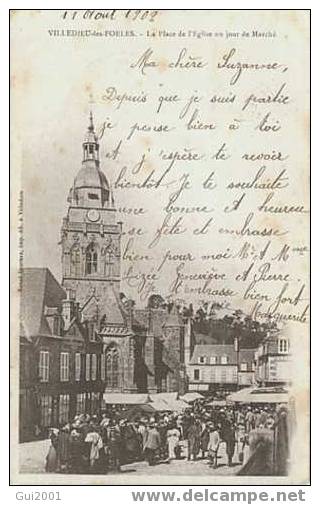 11 Aout 1902
VILLEDIEU-les-POELES. - La Place de l'Eglise un jour de Marché
Ma chère Suzanne,
Depuis que je suis partie
je pense bien à toi
et j'espère te revoir
bientôt. Je te souhaite
une bonne et heureuse
fête et embrasse
bien pour moi Mr et Mme
Geneviève et Pierre.
Je t'embrasse bien fort
Marguerite
Gui2001
http://www.delcampe.net